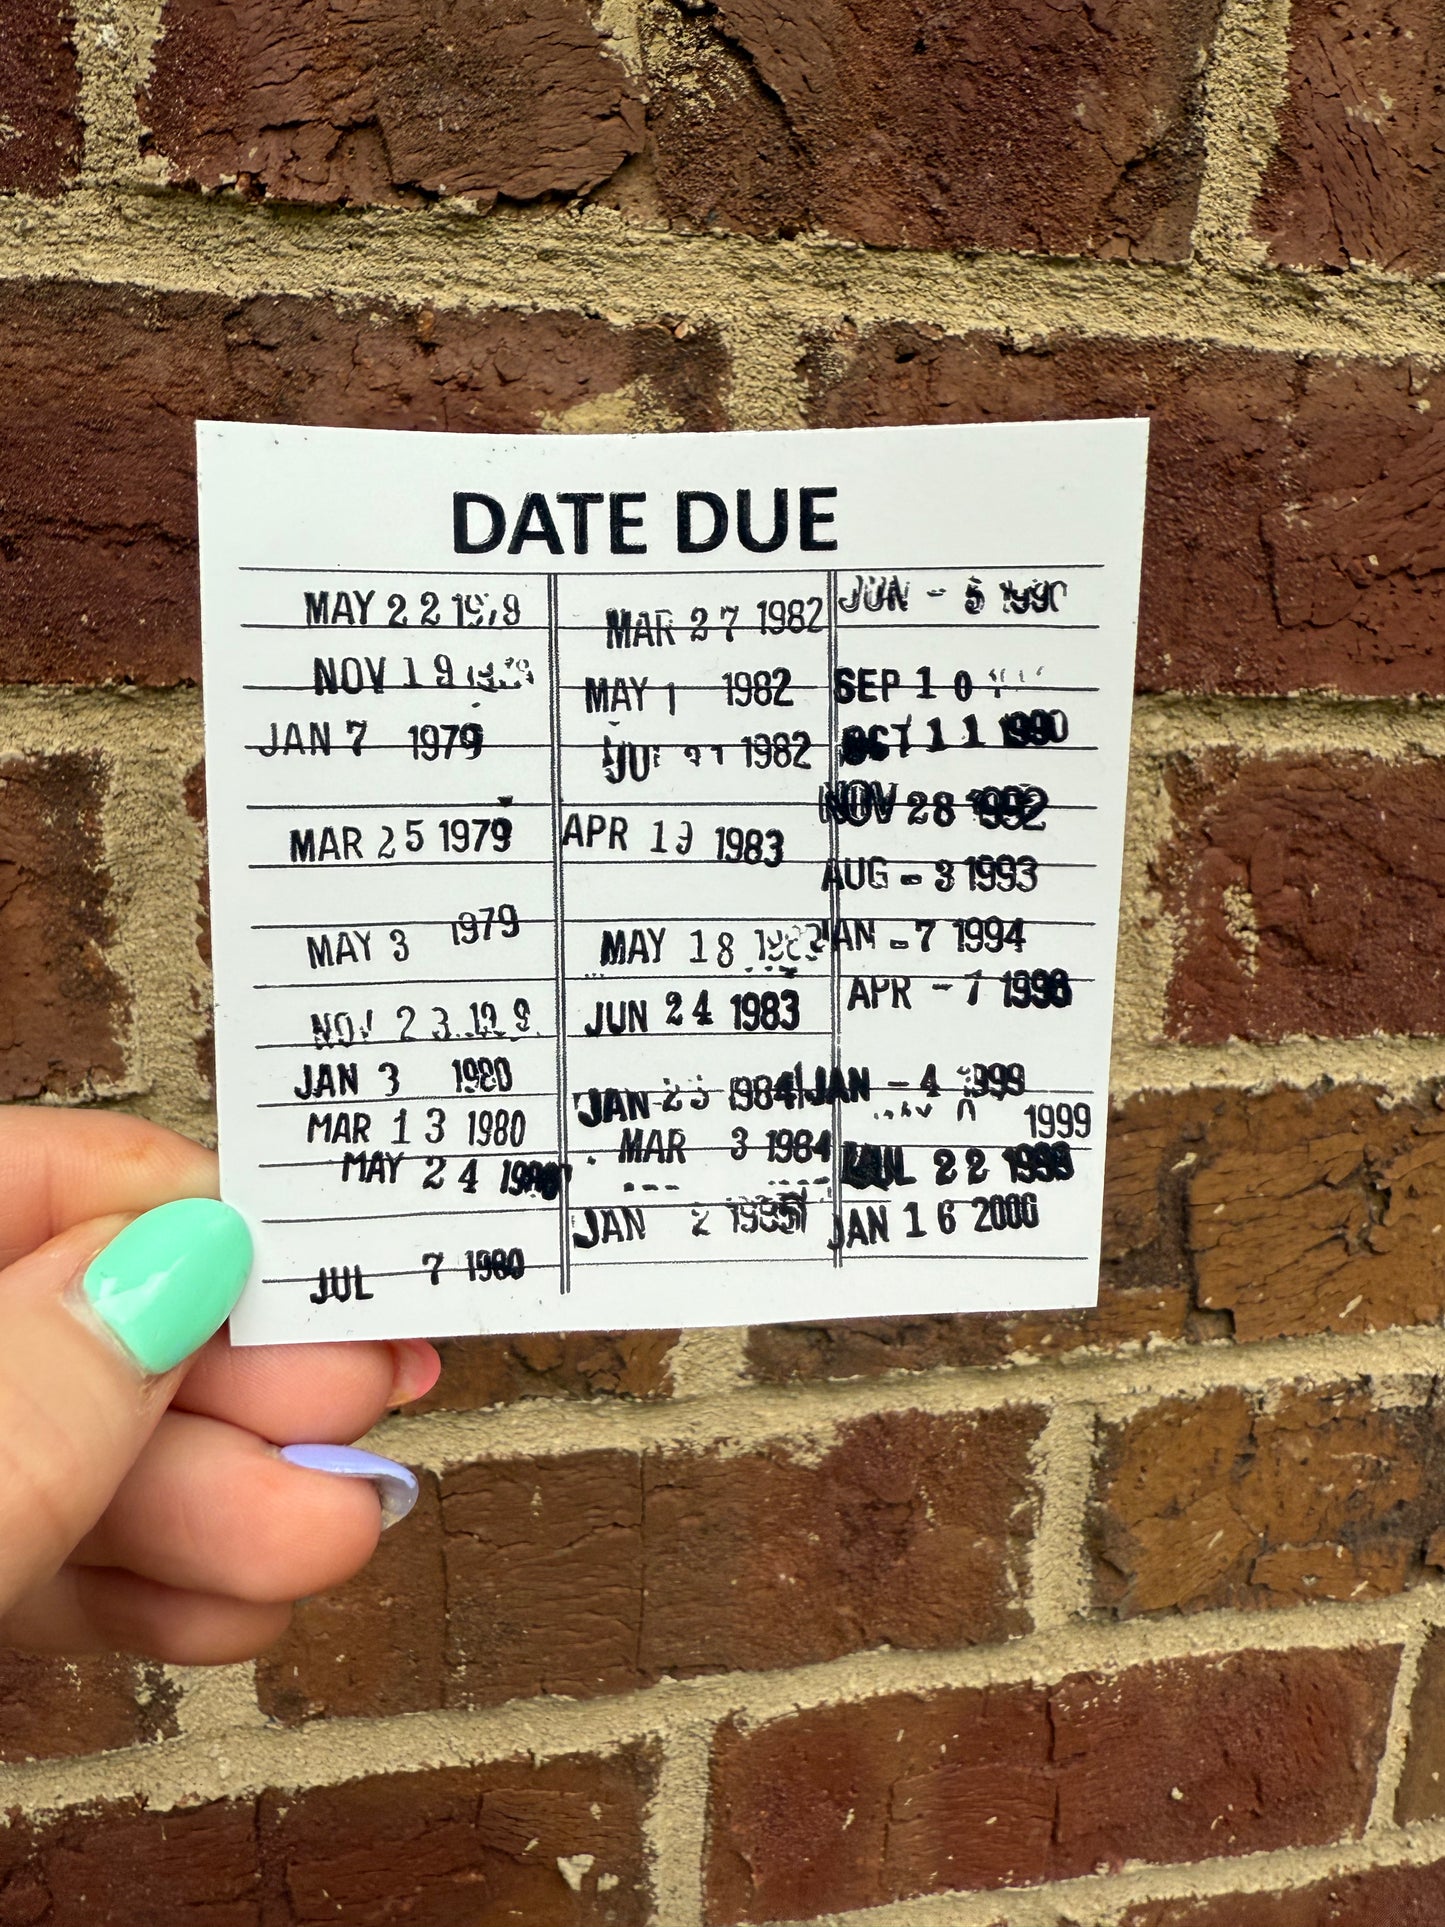 DATE DUE
MAY 22 1979
NOV 19
JAN 7 1979
MAR 25 1979
MAY 3 1979
NOV 23
JAN 3 1980
MAR 13 1980
MAY 24
JUL 7 1980
MAR 27 1982
MAY 1 1982
1982
APR 1983
MAY 18
JUN 24 1983
JAN 1984
MAR 3 1984
JAN 2 1985
JUN - 5 1990
SEP 10
OCT 11 1990
NOV 28 1992
AUG - 3 1993
JAN - 7 1994
APR 1998
JAN - 4 1999
1999
22 1999
JAN 16 2000